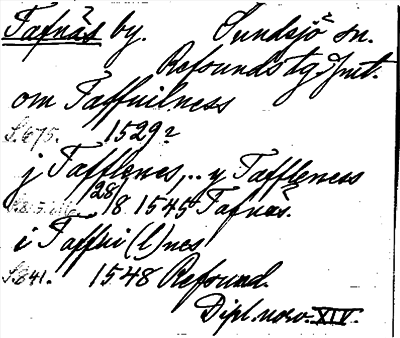 Tafnäs by. Sundsjö sn.
Refsunds tg. Jmt.
om Taffuilness
S. 675. 1529 2
j Tafflenes,.. y Taffleness
28/8 1545 Tafnäs.
i Taffui(l)nes
S. 841. 1548 Refsund.
Dipl. norv. XIV.